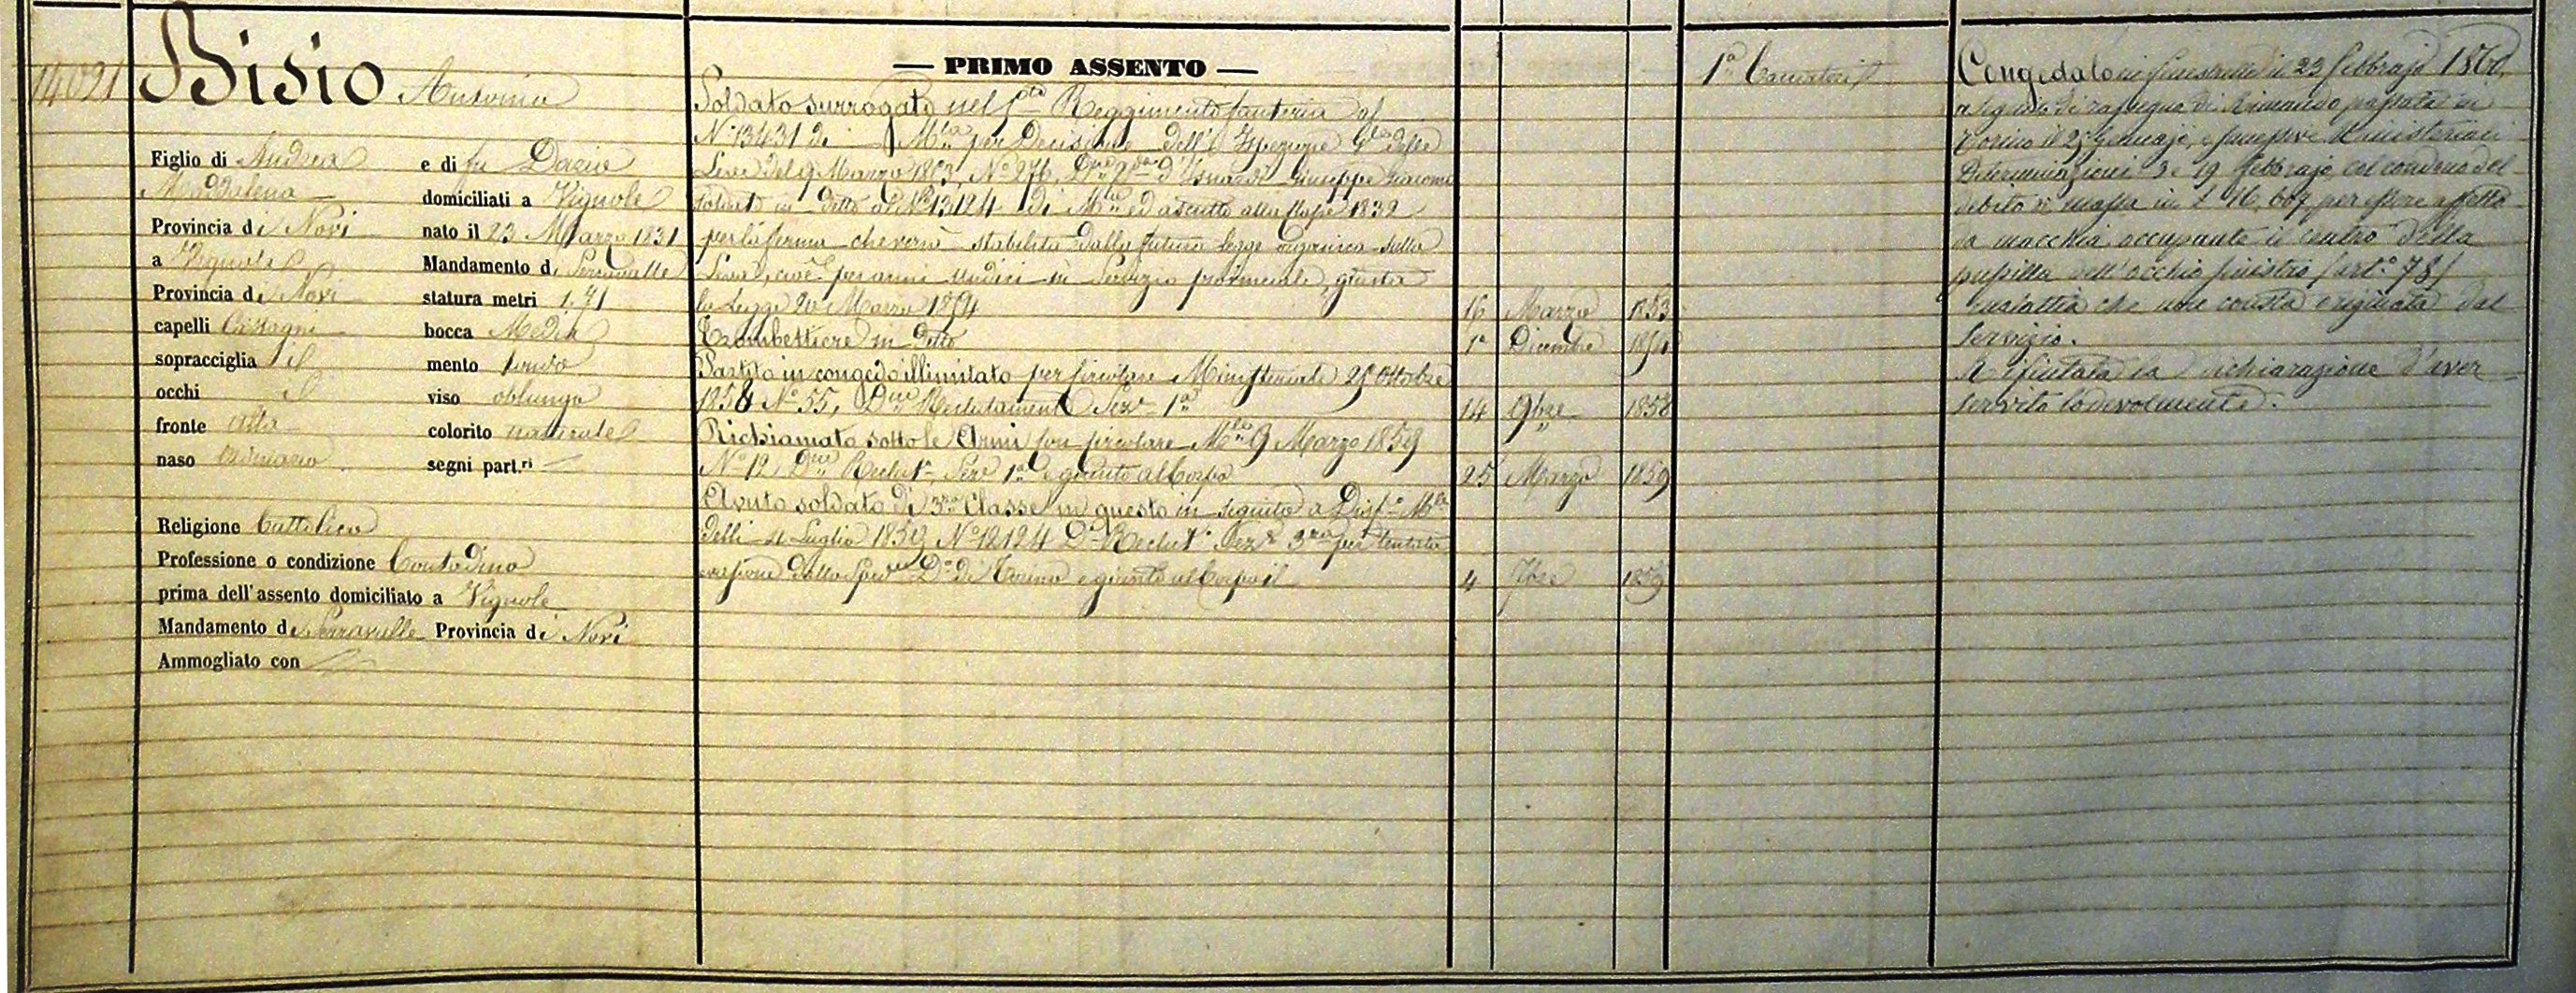 14021
Bisio Antonio
Figlio di Andrea e di fu Dazio
Maddalena domiciliati a Vignole
Provincia di Novi nato il 23 Marzo 1831
a Vignole Mandamento di Serravalle
Provincia di Novi statura metri 1,71
capelli Castagni bocca Media
sopracciglia il mento tondo
occhi viso oblungo
fronte alta colorito naturale
naso segni part.ri —
Religione Cattolica
Professione o condizione Contadino
prima dell'assento domiciliato a Vignole
Mandamento di Serravalle Provincia di Novi
Ammogliato con
— PRIMO ASSENTO —
Soldato surrogato nel Reggimento fanteria al
N° 13431 di Mla per Decisione dell' Ispezione Gle delle
Leve del 9 Marzo 1853, N° 276, d'Isnardi Giuseppe Giacomo
soldato in detto al N° 13,124 di Mla ed ascritto alla classe 1832
per la ferma che verrà stabilita dalla futura legge organica sulla
Leva, cioè per anni undici in Servizio provinciale, giusta
la Legge 20 Marzo 1854 16 Marzo 1853
Trombettiere in detto 1° Dicembre 1854
Partito in congedo illimitato per circolare Ministeriale 29 Ottobre
1858 N° 55, Dne Reclutamento Seze 1a 14 9bre 1858
Richiamato sotto le Armi per circolare Mle 9 Marzo 1859
N° 12, Dne Reclutto Seze 1a e giunto al Corpo 25 Marzo 1859
Avuto soldato di 3za Classe in questo in seguito a Disp° Mle
delli 4 Luglio 1859 N° 12124 Dne Reclutto Seze 3za per tentata
evasione dallo di Torino e giunto al Corpo il 4 7bre 1859
1a Cacciatori
Congedato in Finestrelle il 23 febbrajo 1860,
a seguito di rassegna di Rimando passata in
Torino il 25 Gennajo, e Ministeriali
Determinazioni 3 e 19 febbrajo col condono del
debito di massa in L 16,607 per essere affetto
da macchia occupante il centro della
pupilla dell'occhio sinistro (art.° 78)
malattia che non consta originata dal
servizio.
Rifiutata la dichiarazione d'aver
servito lodevolmente.